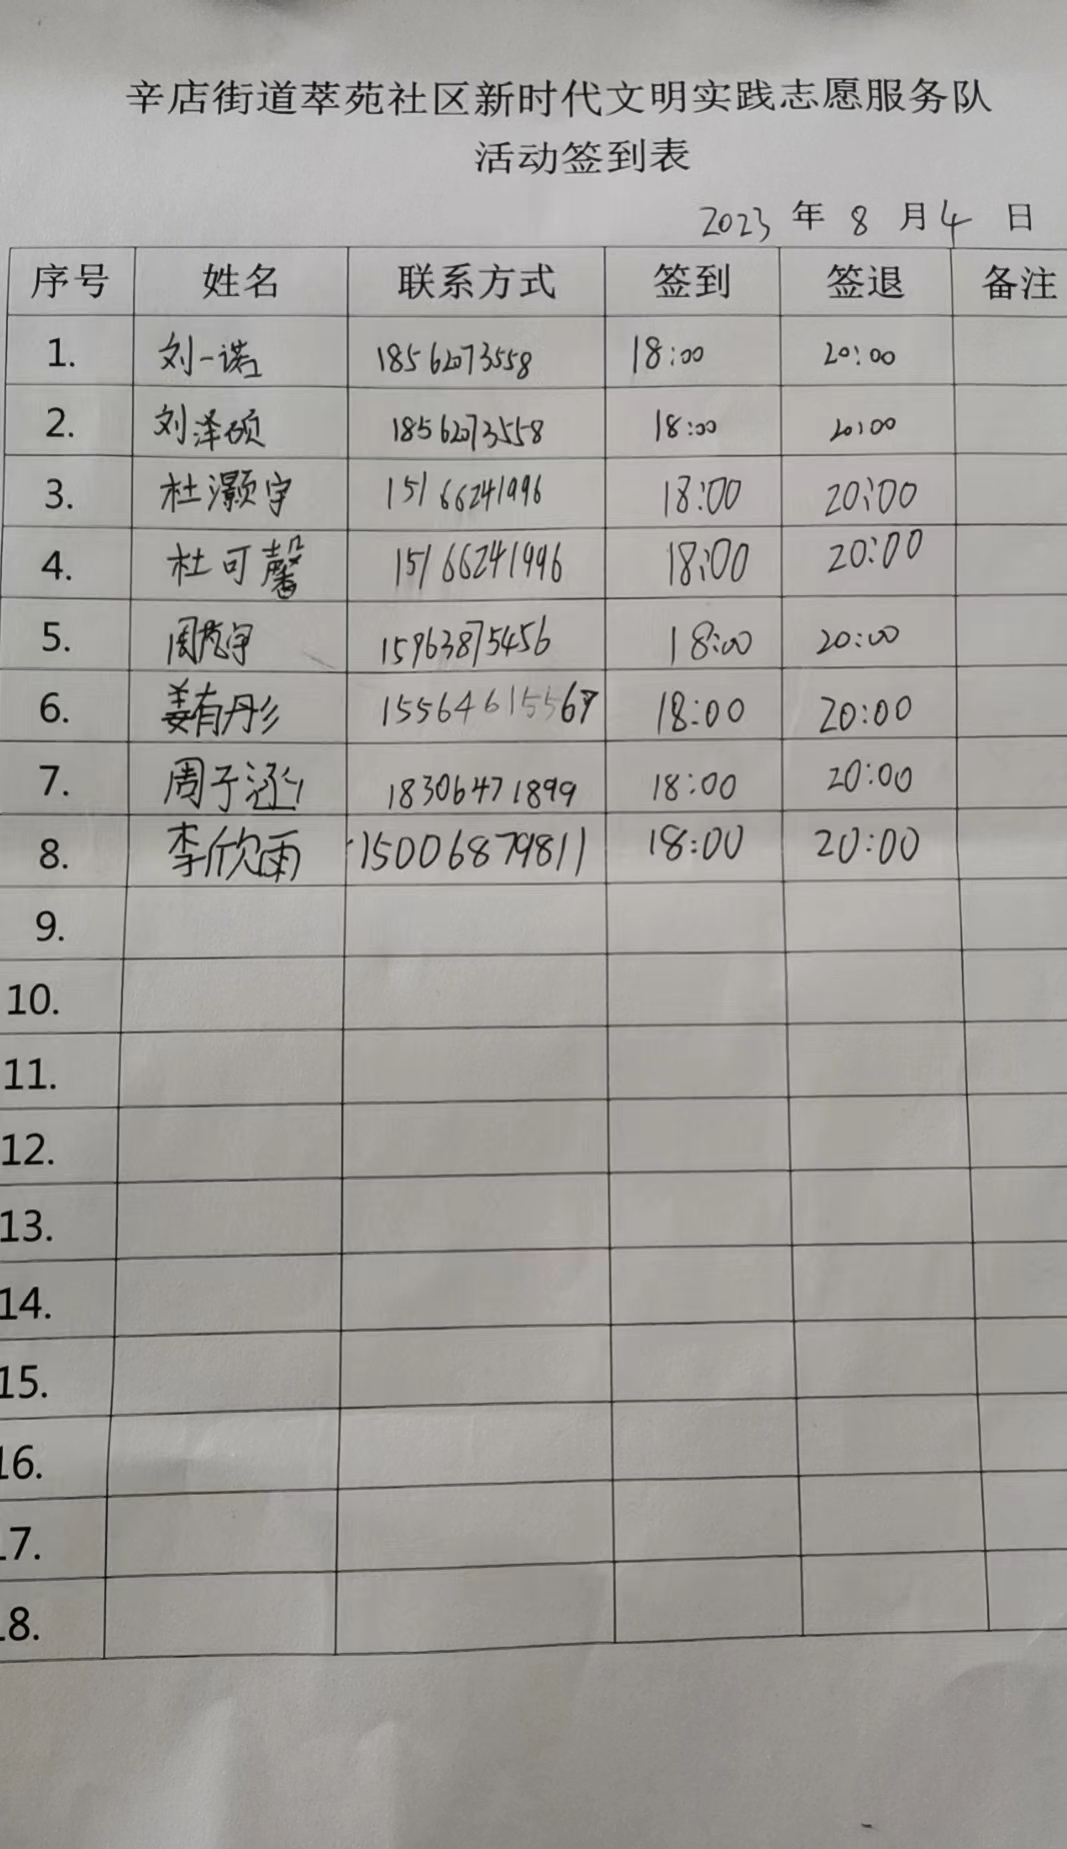 辛店街道萃苑社区新时代文明实践志愿服务队
活动签到表
2023 年 8 月 4 日
序号 姓名 联系方式 签到 签退 备注
1. 刘一诺 18562073558 18:00 20:00
2. 刘泽硕 18562073558 18:00 20:00
3. 杜灏宇 15166241996 18:00 20:00
4. 杜可馨 15166241996 18:00 20:00
5. 周宇 15963875456 18:00 20:00
6. 姜有彤 18:00 20:00
7. 周子涵 18306471899 18:00 20:00
8. 李欣雨 15006879811 18:00 20:00
9.
10.
11.
12.
13.
14.
15.
16.
17.
18.